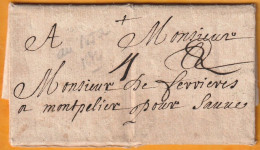 A Monsieur
Monsieur de ferrieres
a montpelier pour Sauve